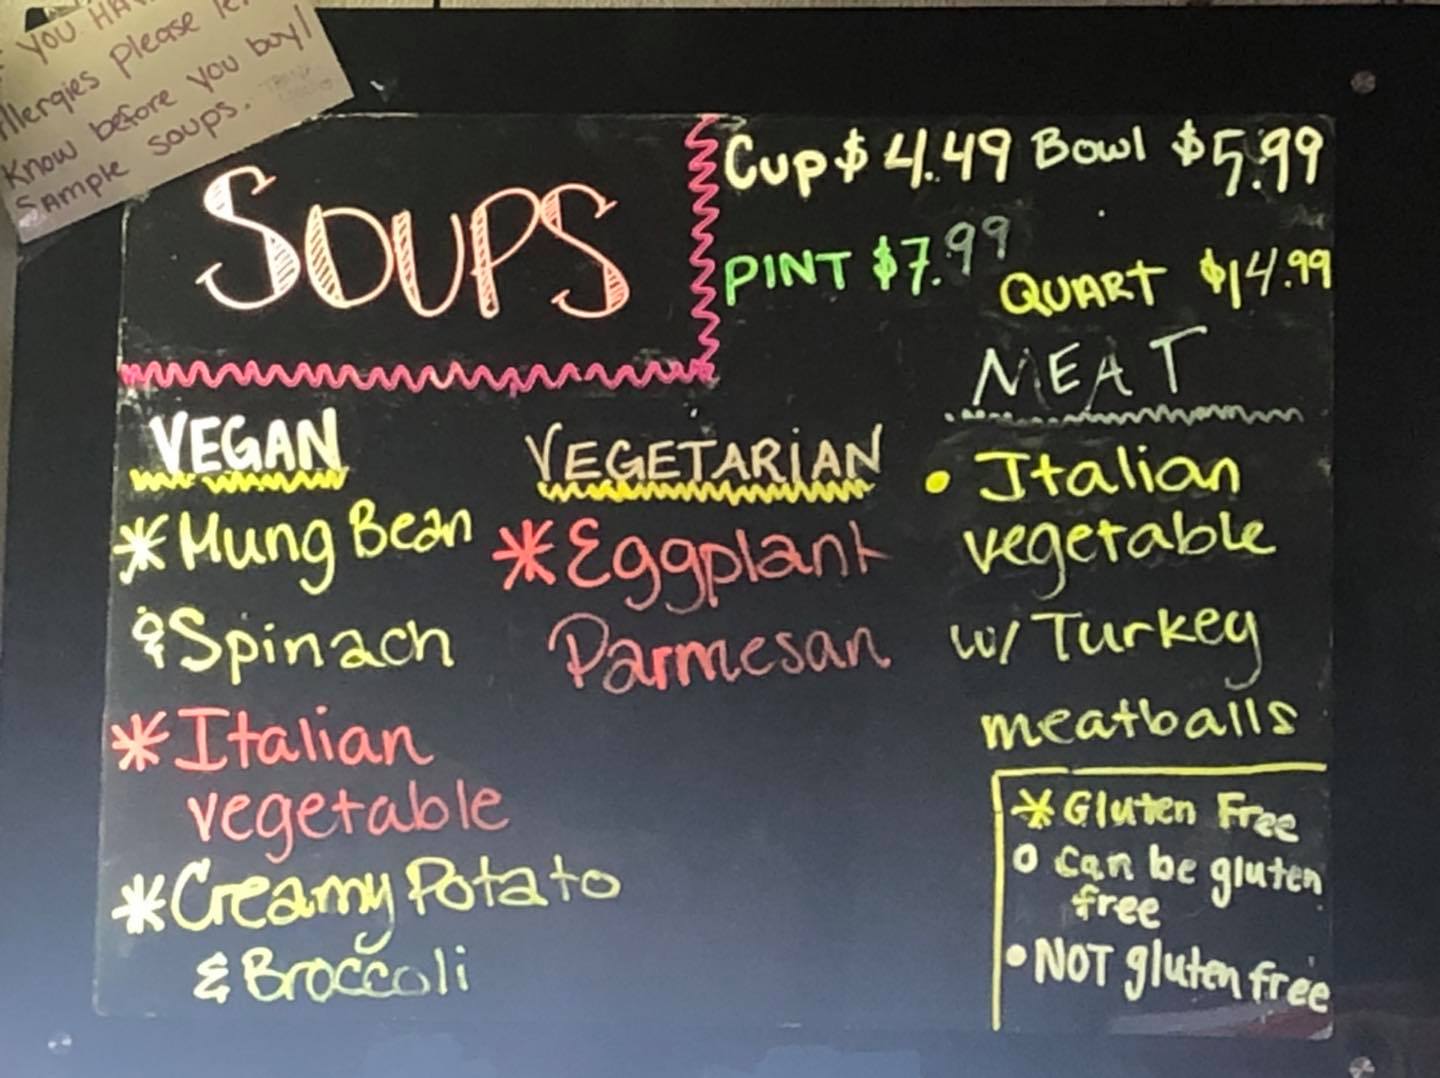 YOU HAV
Allergies please le
Know before you buy!
Sample soups. THANK
SOUPS
Cup $4.49 Bowl $5.99
PINT $7.99
QUART $14.99
VEGAN
*Mung Bean
&Spinach
*Italian
vegetable
*Creamy Potato
&Broccoli
VEGETARIAN
*Eggplant
Parmesan
MEAT
• Italian
vegetable
w/ Turkey
meatballs
* Gluten Free
o can be gluten
free
• NOT gluten free